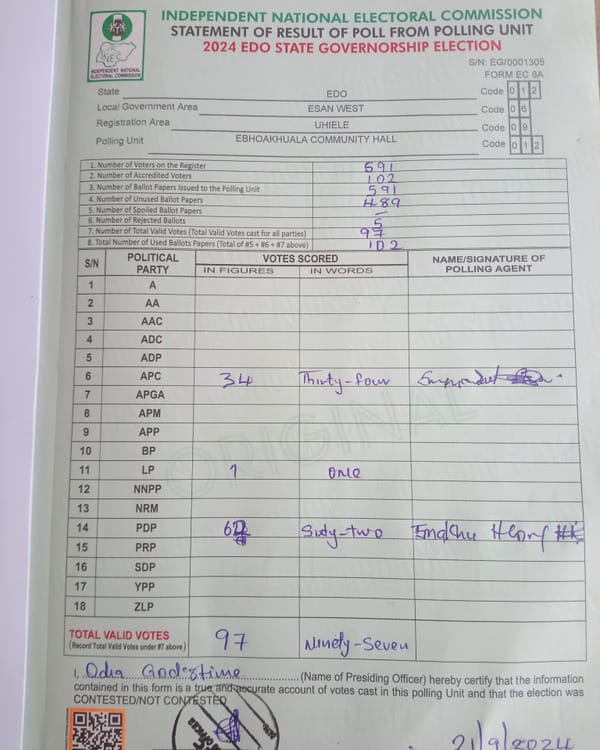 INDEPENDENT NATIONAL ELECTORAL COMMISSION
STATEMENT OF RESULT OF POLL FROM POLLING UNIT
2024 EDO STATE GOVERNORSHIP ELECTION
INEC
INDEPENDENT NATIONAL
ELECTORAL COMMISSION
S/N: EG/0001305
FORM EC 8A
State EDO Code 0 1 2
Local Government Area ESAN WEST Code 0 6
Registration Area UHIELE Code 0 9
Polling Unit EBHOAKHUALA COMMUNITY HALL Code 0 1 2
1. Number of Voters on the Register 591
2. Number of Accredited Voters 102
3. Number of Ballot Papers Issued to the Polling Unit 591
4. Number of Unused Ballot Papers 489
5. Number of Spoiled Ballot Papers –
6. Number of Rejected Ballots 5
7. Number of Total Valid Votes (Total Valid Votes cast for all parties) 97
8. Total Number of Used Ballots Papers (Total of #5 + #6 + #7 above) 102
S/N POLITICAL PARTY VOTES SCORED NAME/SIGNATURE OF POLLING AGENT
IN FIGURES IN WORDS
1 A
2 AA
3 AAC
4 ADC
5 ADP
6 APC 34 Thirty-four
7 APGA
8 APM
9 APP
10 BP
11 LP 1 one
12 NNPP
13 NRM
14 PDP 62 Sixty-two Henry
15 PRP
16 SDP
17 YPP
18 ZLP
ORIGINAL
TOTAL VALID VOTES 97 Ninety-Seven
(Record Total Valid Votes under #7 above)
I, Odia Godstime (Name of Presiding Officer) hereby certify that the information
contained in this form is a true and accurate account of votes cast in this polling Unit and that the election was
CONTESTED/NOT CONTESTED
21/9/2024